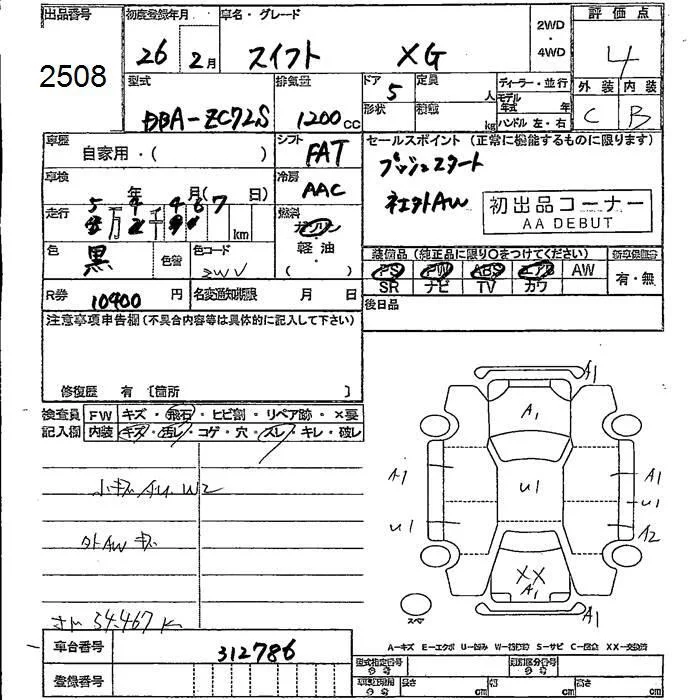 出品番号 初度登録年月 車名・グレード 2WD・4WD 評価点
2508 26 2月 スイフト XG 4
型式 排気量 ドア 5 定員 人 ディーラー・並行 外装 内装
DBA-ZC72S 1200cc 形状 積載 kg モデル年式 年 C B
ハンドル 左・右
車歴 自家用・( ) シフト FAT セールスポイント(正常に機能するものに限ります)
車検 年 月( 日) 冷房 AAC プッシュスタート
走行 5万4千467km 燃料 ガソリン 社外AW
軽油・( )
初出品コーナー
AA DEBUT
色 黒 色替 色コード ZWV
装備品(純正品に限り○をつけてください)
PS PW ABS エアB AW 有・無
SR ナビ TV カワ
R券 10400円 名変通知期限 月 日 後日品
注意事項申告欄(不具合内容等は具体的に記入して下さい)
修復歴 有 〔箇所 〕
検査員 FW キズ・飛石・ヒビ割・リペア跡・×要
記入欄 内装 キズ・汚レ・コゲ・穴・スレ・キレ・破レ
小キズ AU.W2
外AW キズ
54.467K
A1
A1
A1 U1 A1
U1
U1 A2
XX
A1
A1
スペア
車台番号 312786
A-キズ E-エクボ U-凹み W-補修跡 S-サビ C-腐食 XX-交換済
登録番号
型式指定番号 類別区分番号
長さ cm 幅 cm 高さ cm